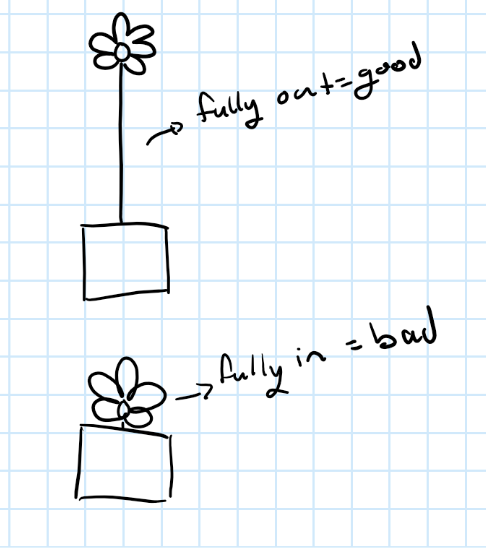 fully out=good
fully in = bad